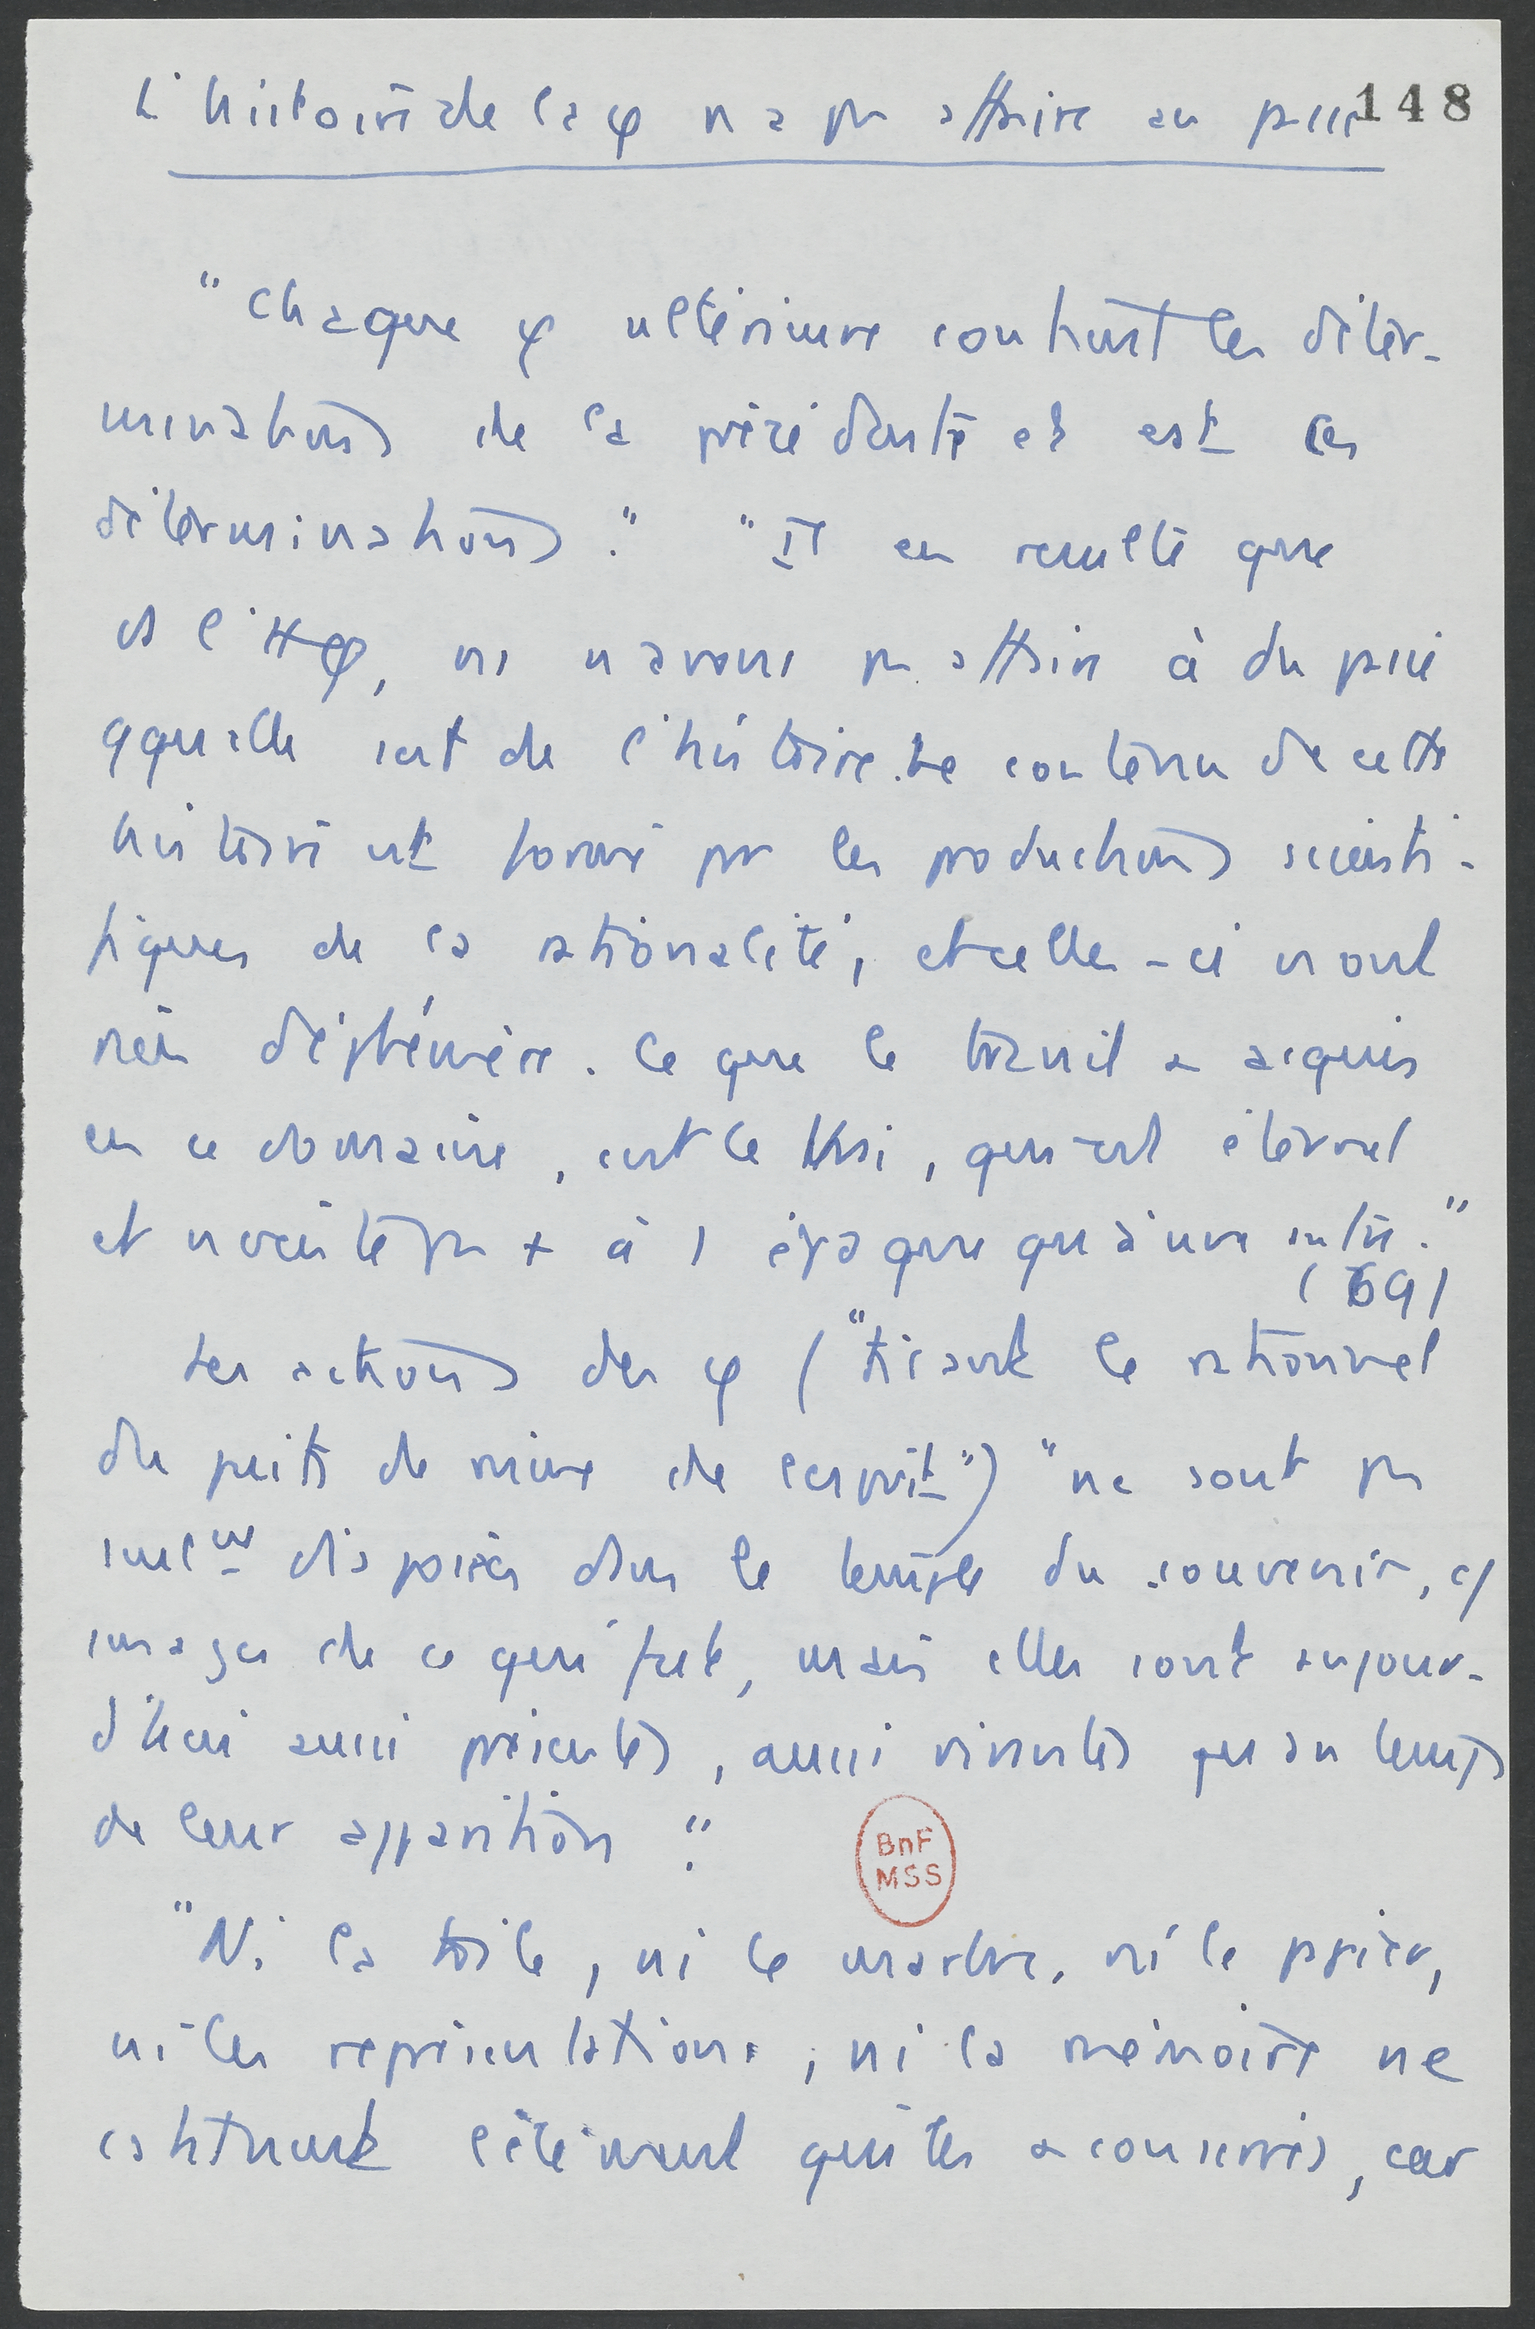 L'histoire de la φ n'a pas affaire au passé
148
"Chaque φ ultérieure contient les déter-
minations de la précédente et est ces
déterminations." "Il en resulte que
ds l'Hφ, ns n'avons pas affaire à du passé
qquelle soit de l'histoire. Le contenu de cette
histoire est formé par les productions scienti-
fiques de la rationalité, et celles-ci n'ont
rien d'éphémère. Ce que le travail a acquis
en ce domaine, c'est le Vrai, qui est éternel
et n'existe pas + à 1 époque qu'à une autre."
(69)
Les actions des φ ("tirant le rationnel
du puits de mine de l'esprit") "ne sont pas
seulmt disposées dans le temple du souvenir, c/
images de ce qui fut, mais elles sont aujour-
d'hui aussi présentes, aussi vivantes qu'au temps
de leur apparition."
BnF
MSS
"Ni la toile, ni le marbre, ni le papier,
ni les représentations, ni la mémoire ne
constituent l'élément qui les a conservées, car